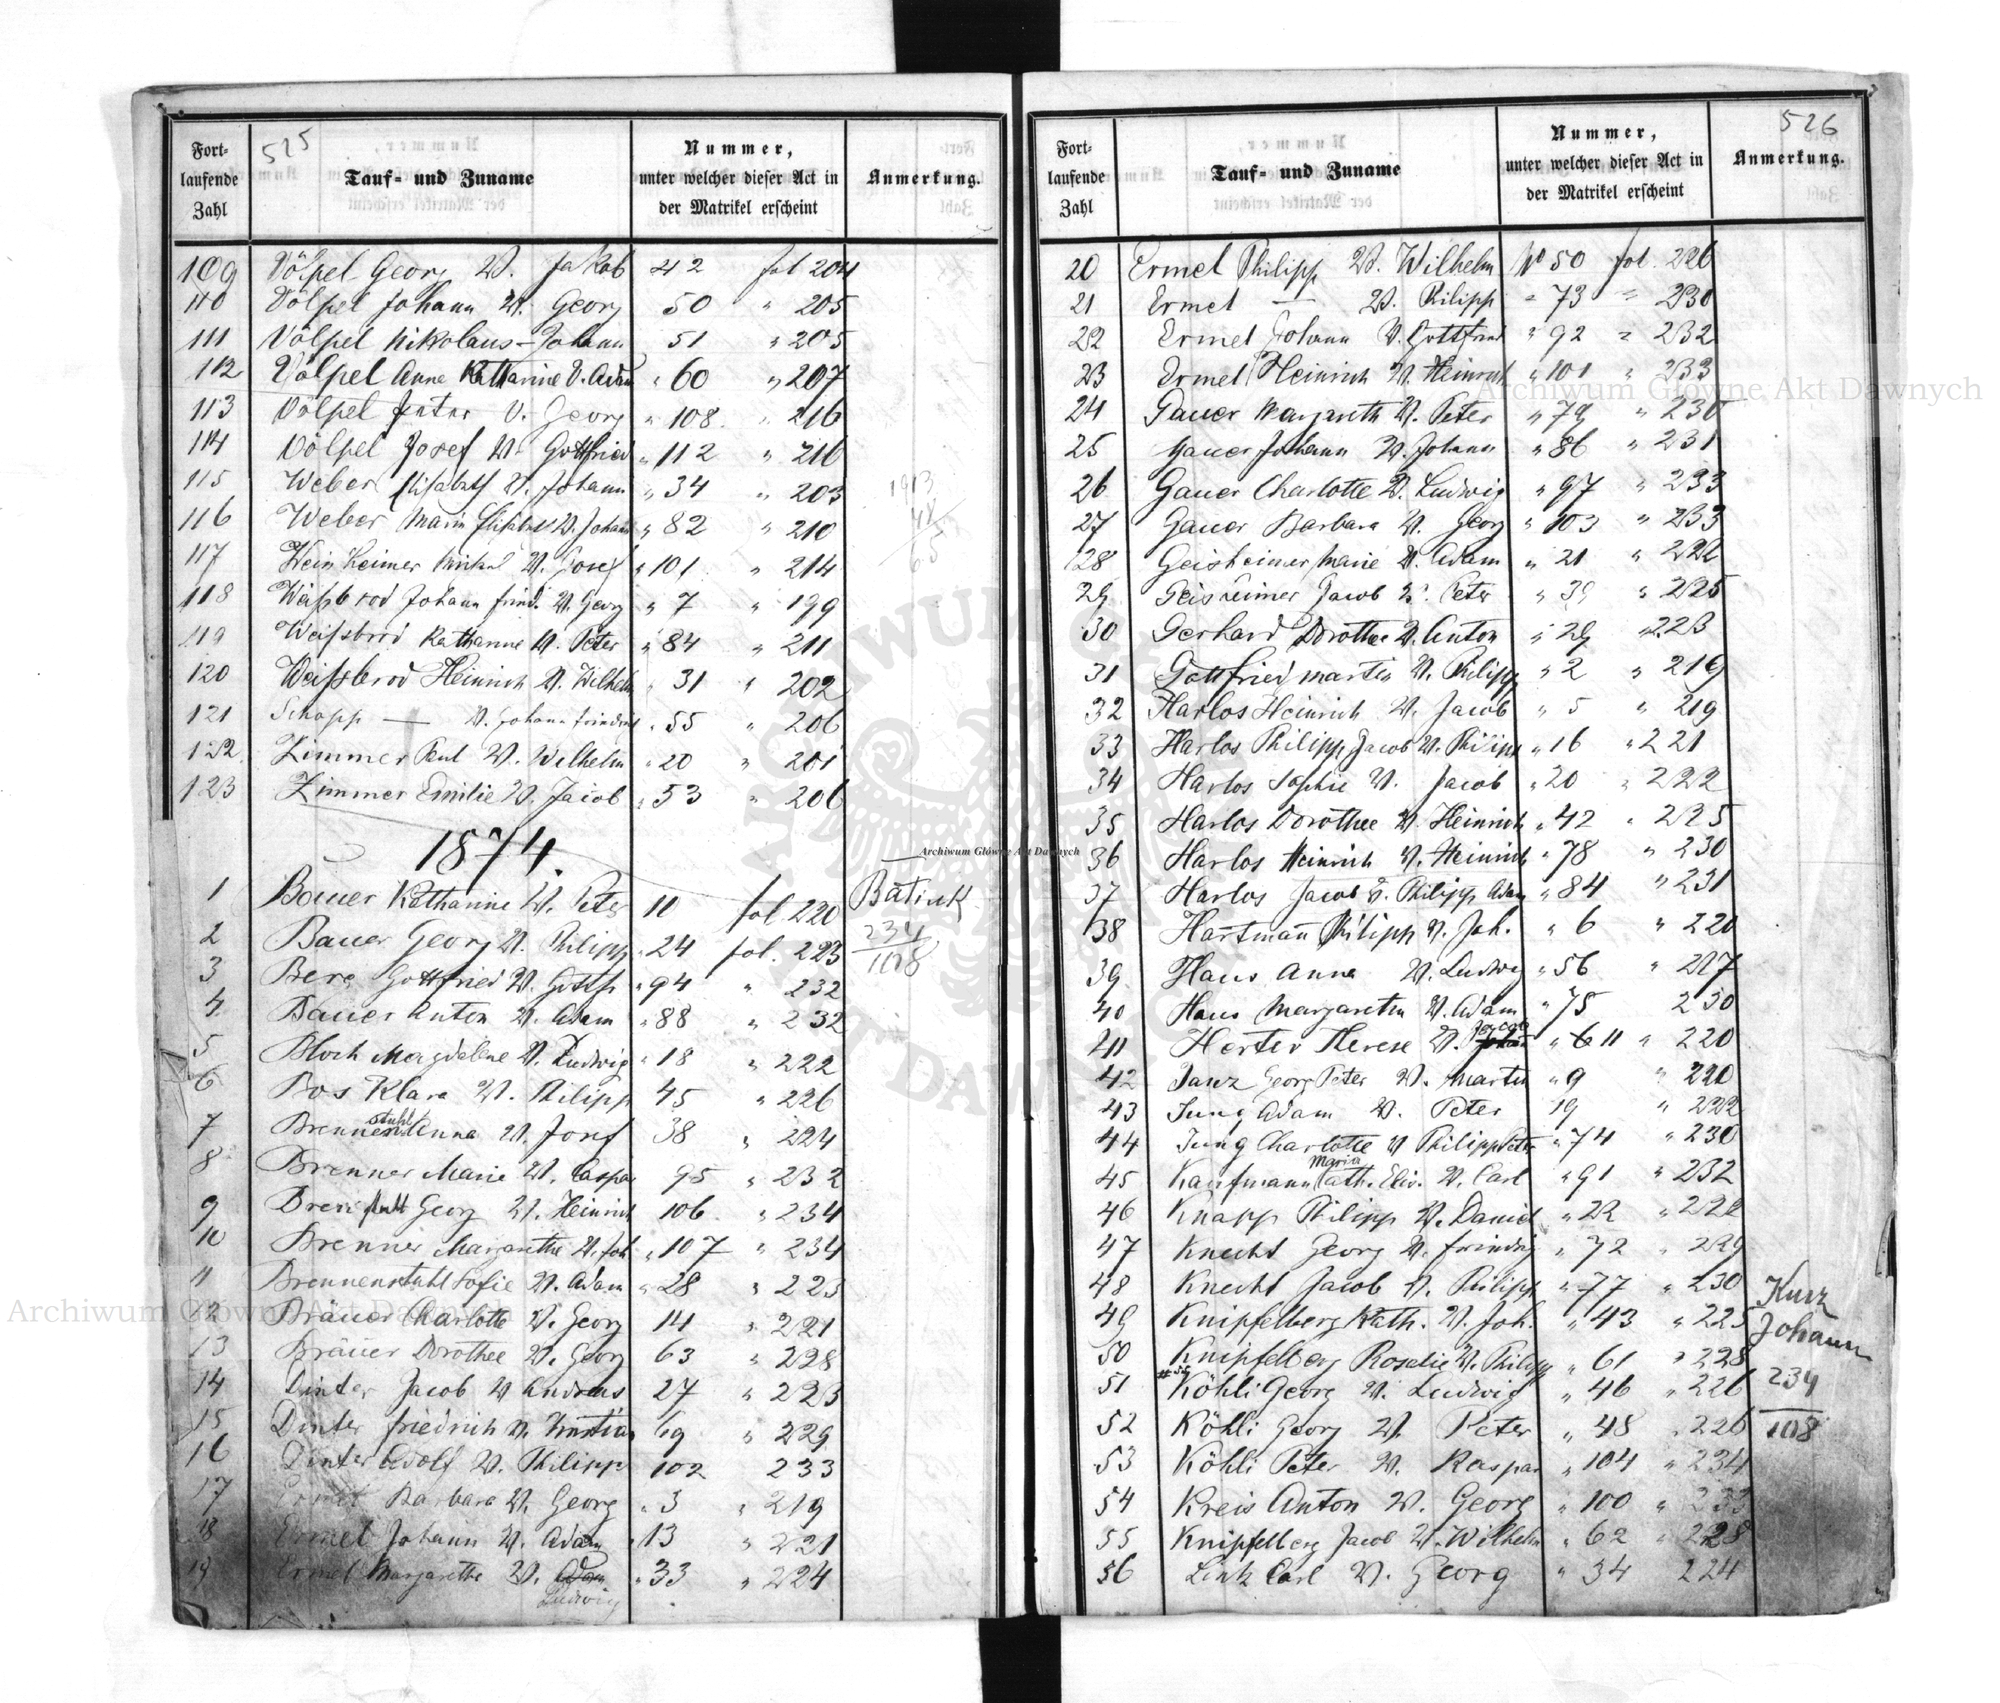 525
Fort-
laufende
Zahl
Tauf- und Zuname
Nummer,
unter welcher dieser Act in
der Matrikel erscheint
Anmerkung.
109 Völpel Georg V. Jakob 42 fol 204
110 Völpel Johann V. Georg 50 " 205
111 Völpel Nikolaus - Johann 51 " 205
112 Völpel Anna Katharine V. Adam " 60 " 207
113 Völpel Peter V. Georg " 108 " 216
114 Völpel Josef V. Gottfried " 112 " 216
115 Weber Elisabeth V. Johann " 34 " 203
116 Weber Marie Elisabeth V. Johann " 82 " 210
117 Weinheimer V. Josef " 101 " 214
118 Weissbrod Johann Fried. V. Georg " 7 " 199
119 Weissbrod Katharine V. Peter " 84 " 211
120 Weissbrod Heinrich V. Wilhelm " 31 " 202
121 Schapp — V. Johann Friedrich " 55 " 206
122 Zimmer Paul V. Wilhelm " 20 " 201
123 Zimmer Emilie V. Jacob " 53 " 206
1913
48
65
1874.
1 Bauer Katharine V. Peter 10 fol 220 Batiuk
2 Bauer Georg V. Philipp " 24 fol. 223 234
108
3 Berg Gottfried V. Gottfr " 94 " 232
4 Bauer Anton V. Adam " 88 " 232
5 Bloch Magdalene V. Ludwig " 18 " 222
6 Bos Klara V. Philipp 45 " 226
7 Brennenstuhl Anna V. Josef 38 " 224
8 Brenner Marie V. Caspar 95 " 232
9 Brennstuhl Georg V. Heinrich 106 " 234
10 Brenner Margarethe V. Joh " 107 " 234
11 Brennenstuhl Sofie V. Adam " 28 " 223
12 Bräuer Charlotte V. Georg 14 " 221
13 Bräuer Dorothee V. Georg 63 " 228
14 Dinter Jacob V Andreas 27 " 223
15 Dinter Friedrich V. Kristian 69 " 229
16 Dinter Adolf V. Philipp 102 233
17 Ermel Barbara V. Georg " 3 " 219
18 Ermel Johann V. Adam " 13 " 221
19 Ermel Margarethe V. Adam " 33 " 224
Ludwig
526
Fort-
laufende
Zahl
Tauf- und Zuname
Nummer,
unter welcher dieser Act in
der Matrikel erscheint
Anmerkung.
20 Ermel Philipp V. Wilhelm No 50 fol. 226
21 Ermel — V. Philipp " 73 " 230
22 Ermel Johann V. Gottfried " 92 " 232
23 Ermel Heinrich V. Heinrich " 101 " 233
24 Gauer Margareth V. Peter " 79 " 230
25 Gauer Johann V. Johann " 86 " 231
26 Gauer Charlotte V. Ludwig " 97 " 233
27 Gauer Barbara V. Georg " 103 " 233
28 Geisheimer Marie V. Adam " 21 " 222
29 Geisheimer Jacob V. Peter " 39 " 225
30 Gerhard Dorothee V. Anton " 29 " 223
31 Gottfried Martin V. Philipp " 2 " 219
32 Harlos Heinrich V. Jacob " 5 " 219
33 Harlos Philipp Jacob V. Philipp " 16 " 221
34 Harlos Sophie V. Jacob " 20 " 222
35 Harlos Dorothee V. Heinrich " 42 " 225
36 Harlos Heinrich V. Heinrich " 78 " 230
37 Harlos Jacob V. Philipp Adam " 84 " 231
38 Hartmann Philipp V. Joh. " 6 " 220
39 Haus Anna V. Ludwig " 56 " 227
40 Haus Margaretha V. Adam " 75 230
41 Herter Therese V. Jacob " 11 " 220
42 Janz Georg Peter V. Martin " 9 " 220
43 Jung Adam V. Peter 19 " 222
44 Jung Charlotte V Philipp Peter " 74 " 230
45 Kaufmann Maria Cath. Elis. V. Carl " 91 " 232
46 Knapp Philipp V. Daniel " 22 " 222
47 Knecht Georg V. Friedrig " 72 " 229
48 Knecht Jacob V. Philipp " 77 " 230
49 Knipfelberg Kath. V. Joh. " 43 " 225
50 Knipfelberg Rosalie V. Philipp " 61 " 228
51 Köhli Georg V. Ludwig " 46 " 226
52 Köhli Georg V. Peter " 48 " 226
53 Köhli Peter V. Kaspar " 104 " 234
54 Kreis Anton V. Georg " 100 " 233
55 Knipfelberg Jacob V. Wilhelm " 62 " 228
56 Link Carl V. Georg " 34 224
Kurz
Johann
234
108
Archiwum Główne Akt Dawnych
Archiwum Główne Akt Dawnych
Archiwum Główne Akt Dawnych
ARCHIWUM GŁÓWNE AKT DAWNYCH